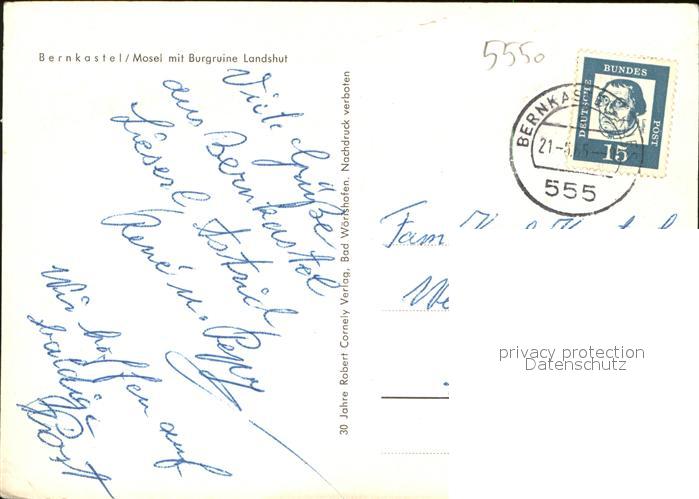 Bernkastel/Mosel mit Burgruine Landshut
Viele Grüße
aus Bernkastel
Lieserl, Astrid
René u. Peppy
Wir hoffen auf
baldige
Post
30 Jahre Robert Cornely Verlag, Bad Wörishofen. Nachdruck verboten
5550
DEUTSCHE
BUNDES
POST
15
BERNKASTEL
21-5.65
555
Fam
We
privacy protection
Datenschutz